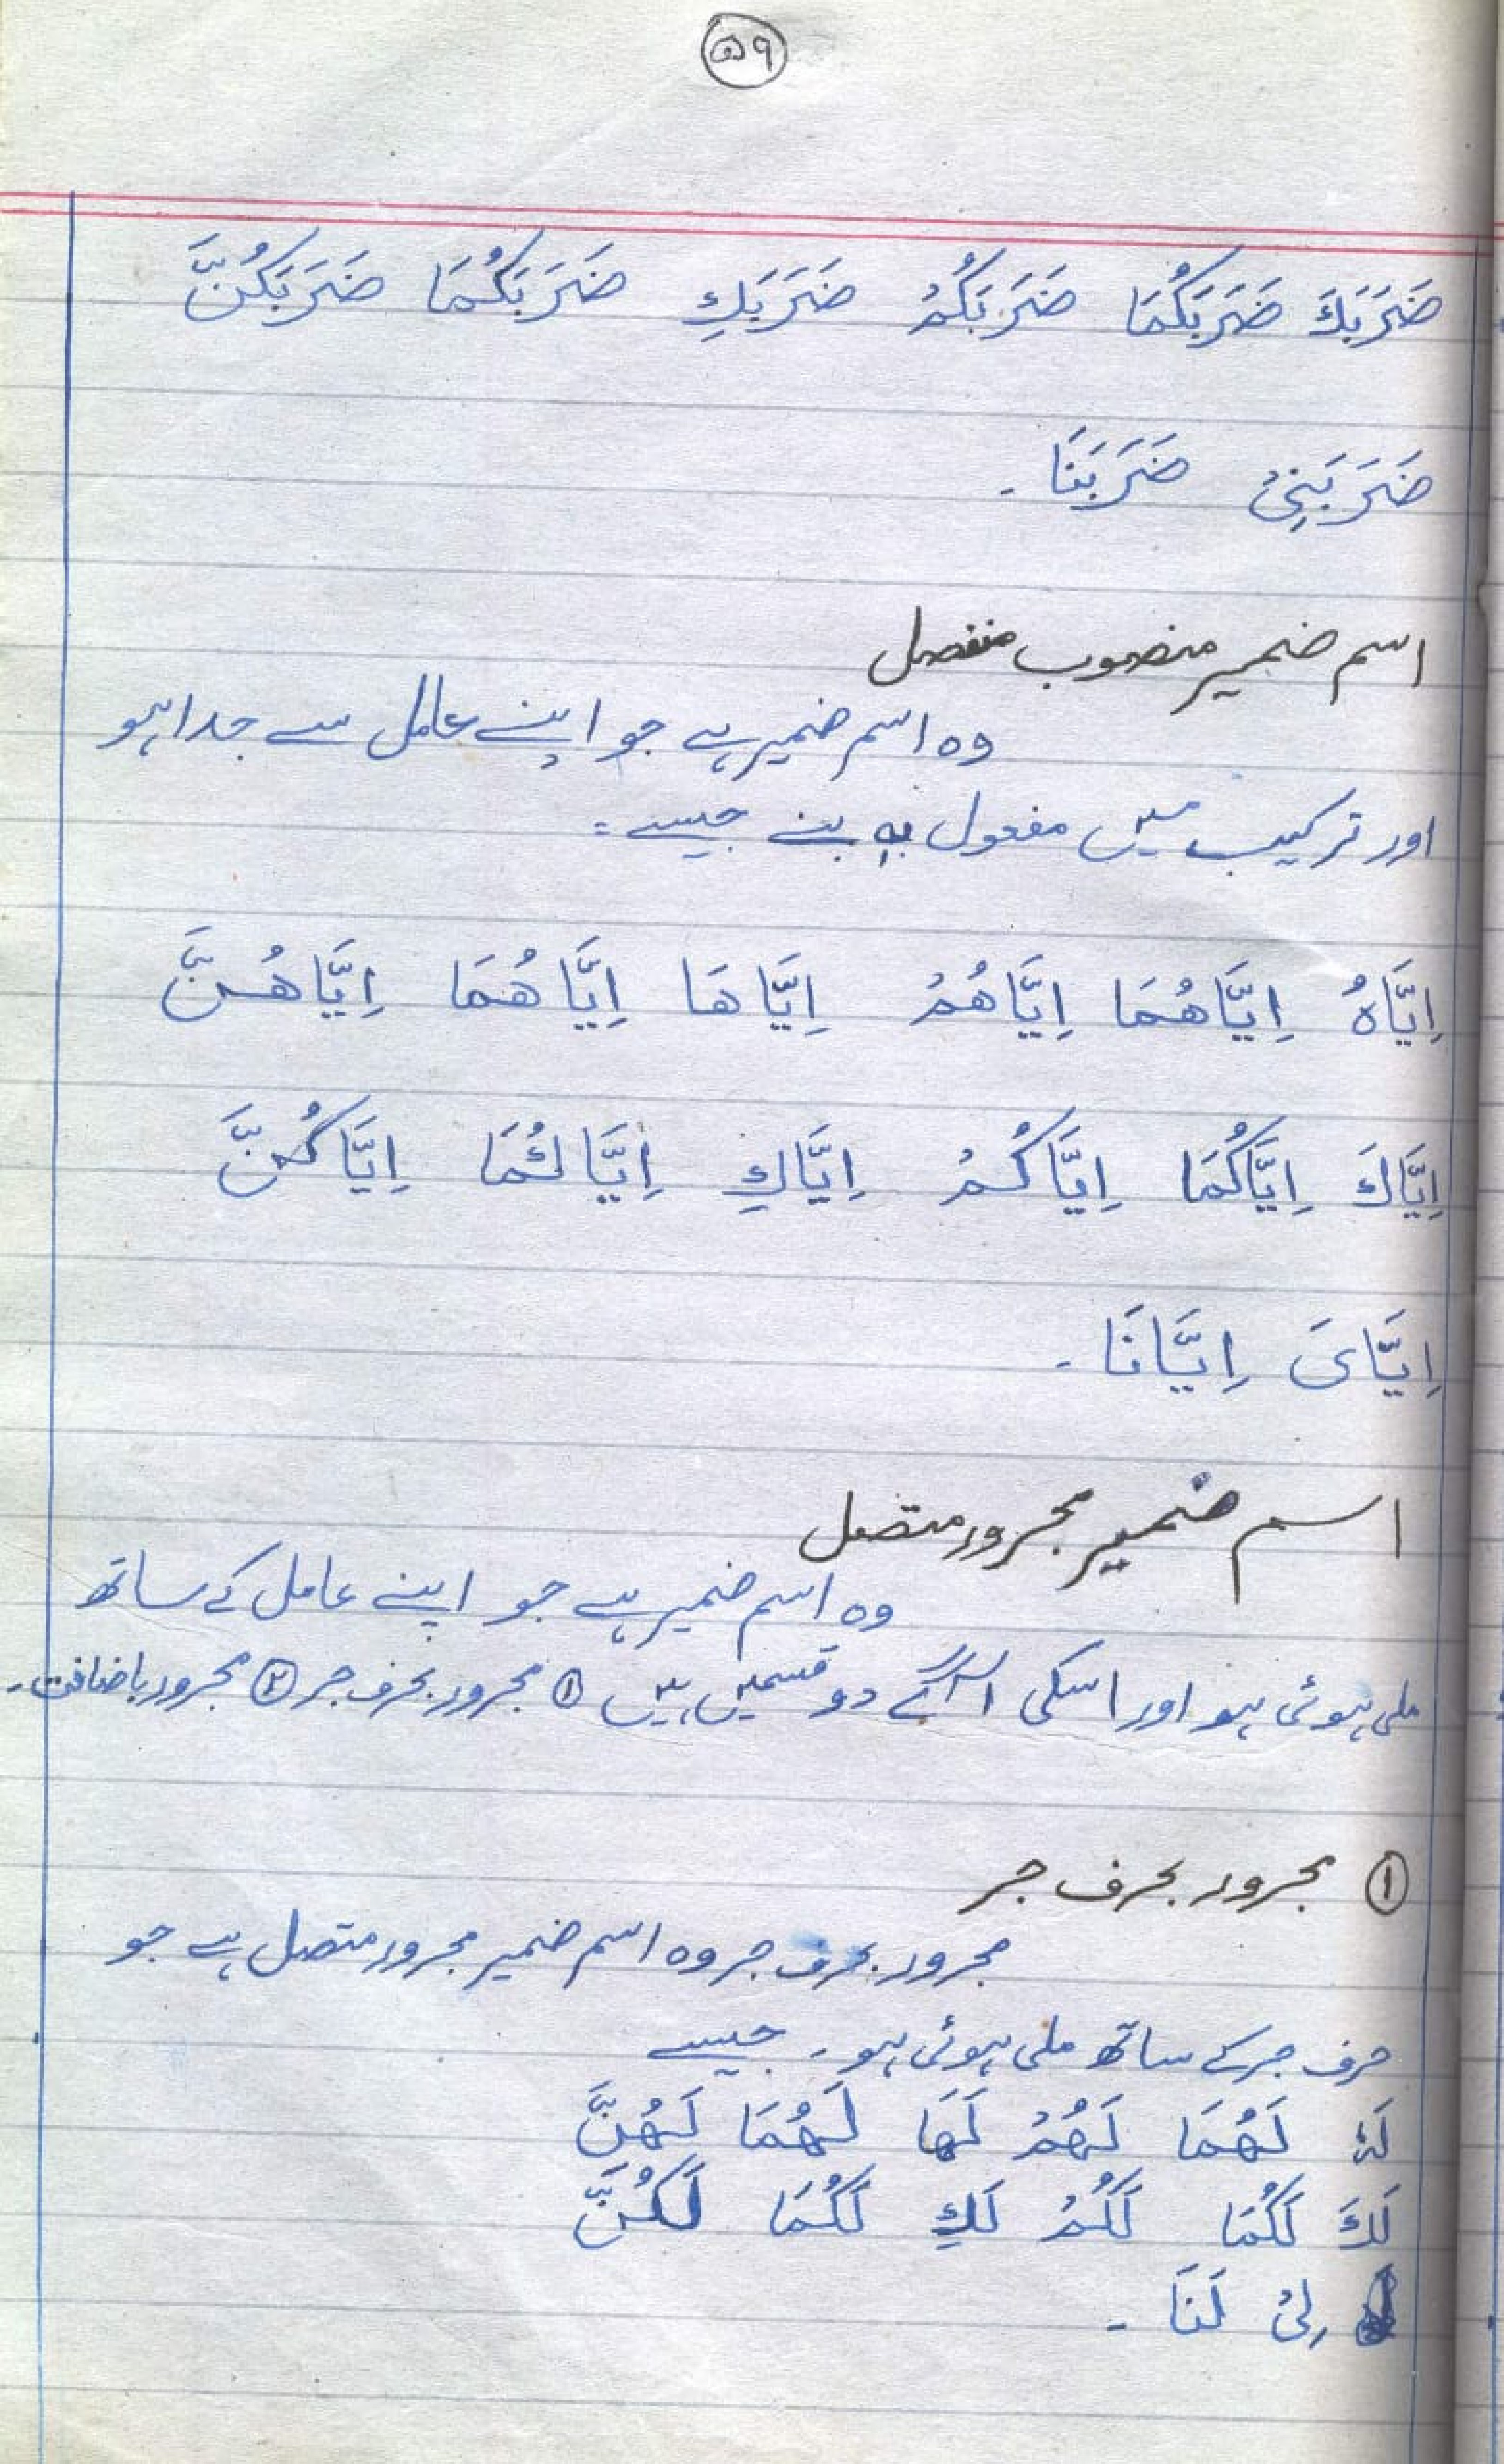 ۵۹
ضَرَبَكَ ضَرَبَكُمَا ضَرَبَكُمْ ضَرَبَكِ ضَرَبَكُمَا ضَرَبَكُنَّ
ضَرَبَنِیْ ضَرَبَنَا ۔
اسم ضمیر منصوب منفصل
وہ اسم ضمیر ہے جو اپنے عامل سے جدا ہو
اور ترکیب میں مفعول بہ بنے جیسے :
اِيَّاهُ اِيَّاهُمَا اِيَّاهُمْ اِيَّاهَا اِيَّاهُمَا اِيَّاهُنَّ
اِيَّاكَ اِيَّاكُمَا اِيَّاكُمْ اِيَّاكِ اِيَّاكُمَا اِيَّاكُنَّ
اِيَّایَ اِيَّانَا ۔
اسم ضمیر مجرور متصل
وہ اسم ضمیر ہے جو اپنے عامل کے ساتھ
ملی ہوئی ہو اور اسکی آگے دو قسمیں ہیں ① مجرور بحرف جر ② مجرور باضافت۔
① مجرور بحرف جر
مجرور بحرف جر وہ اسم ضمیر مجرور متصل ہے جو
حرف جر کے ساتھ ملی ہوئی ہو۔ جیسے
لَهٗ لَهُمَا لَهُمْ لَهَا لَهُمَا لَهُنَّ
لَكَ لَكُمَا لَكُمْ لَكِ لَكُمَا لَكُنَّ
لِیْ لَنَا ۔